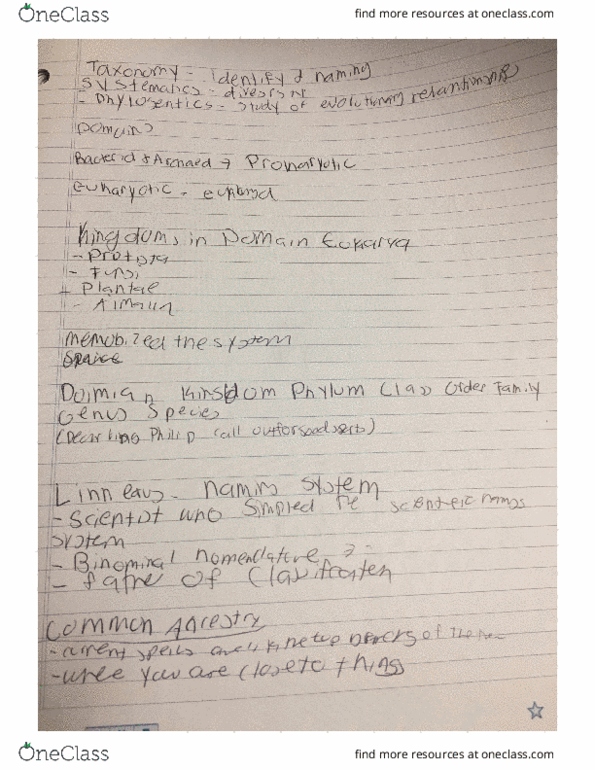 OneClass
find more resources at oneclass.com
Taxonomy - identify & naming
Systematics - diversity
- Phylogentics - study of evolutionary relationship
Domains
Bacteria & Archaea → Prokaryotic
eukaryotic -
Kingdoms in Domain Eukarya
- Protista
- Fungi
+ Plantae
- Aimalia
memobized the system
Domian Kingdom Phylum Class Order Family
Genus Species
(Dear King Philip call
Linneaus - naming system
- Scientist who simpled the scienteric names
system
- Binominal nomenclature
- father of Clasification
Common Ancestry
- current species of the
- where you are close to things
OneClass
find more resources at oneclass.com